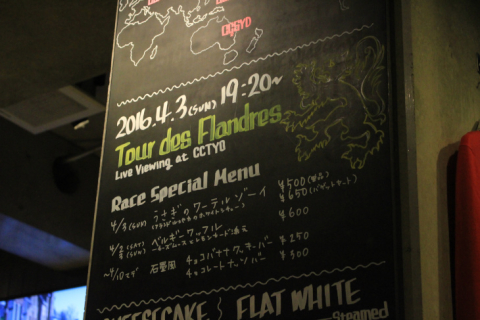 CCTYO
2016.4.3(SUN) 19:20~
Tour des Flandres
Live Viewing at CCTYO
Race Special Menu
4/3(SUN) うさぎのワーテルゾーイ ¥500(単品)
¥650(バゲットサート)
¥600
ベルギーワッフル
~4/10まで 石墨園 チョコバナナクッキーバー ¥250
チョコレートナッツバー ¥300
CHEESECAKE FLAT WHITE
Steamed